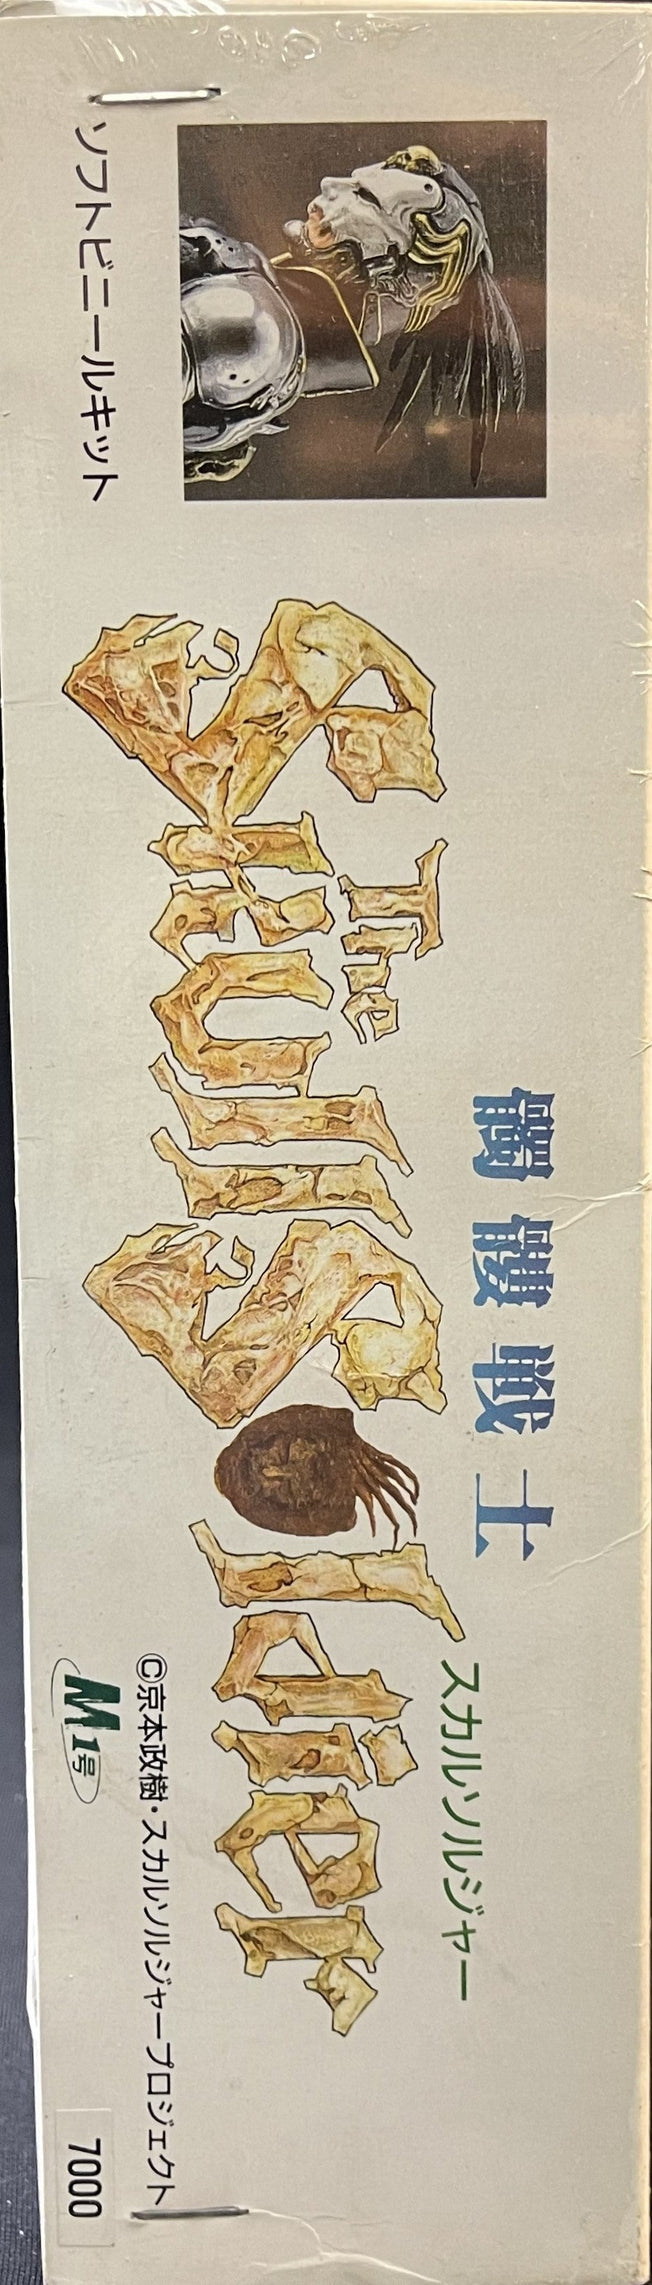 髑髏戦士
スカルソルジャー
The
Skull Soldier
ソフトビニールキット
©京本政樹・スカルソルジャープロジェクト
M1号
7000